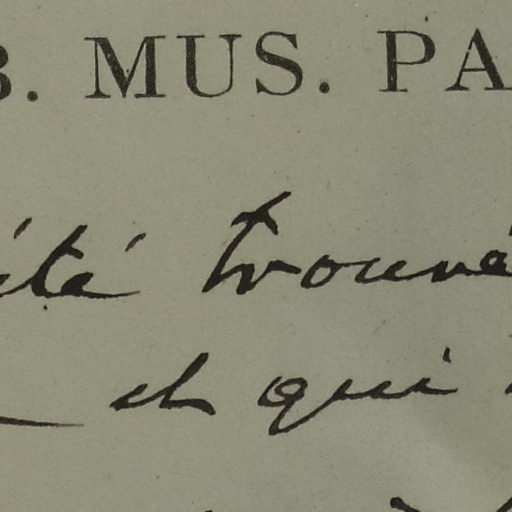 B. MUS. PA
été trouvé
et qui